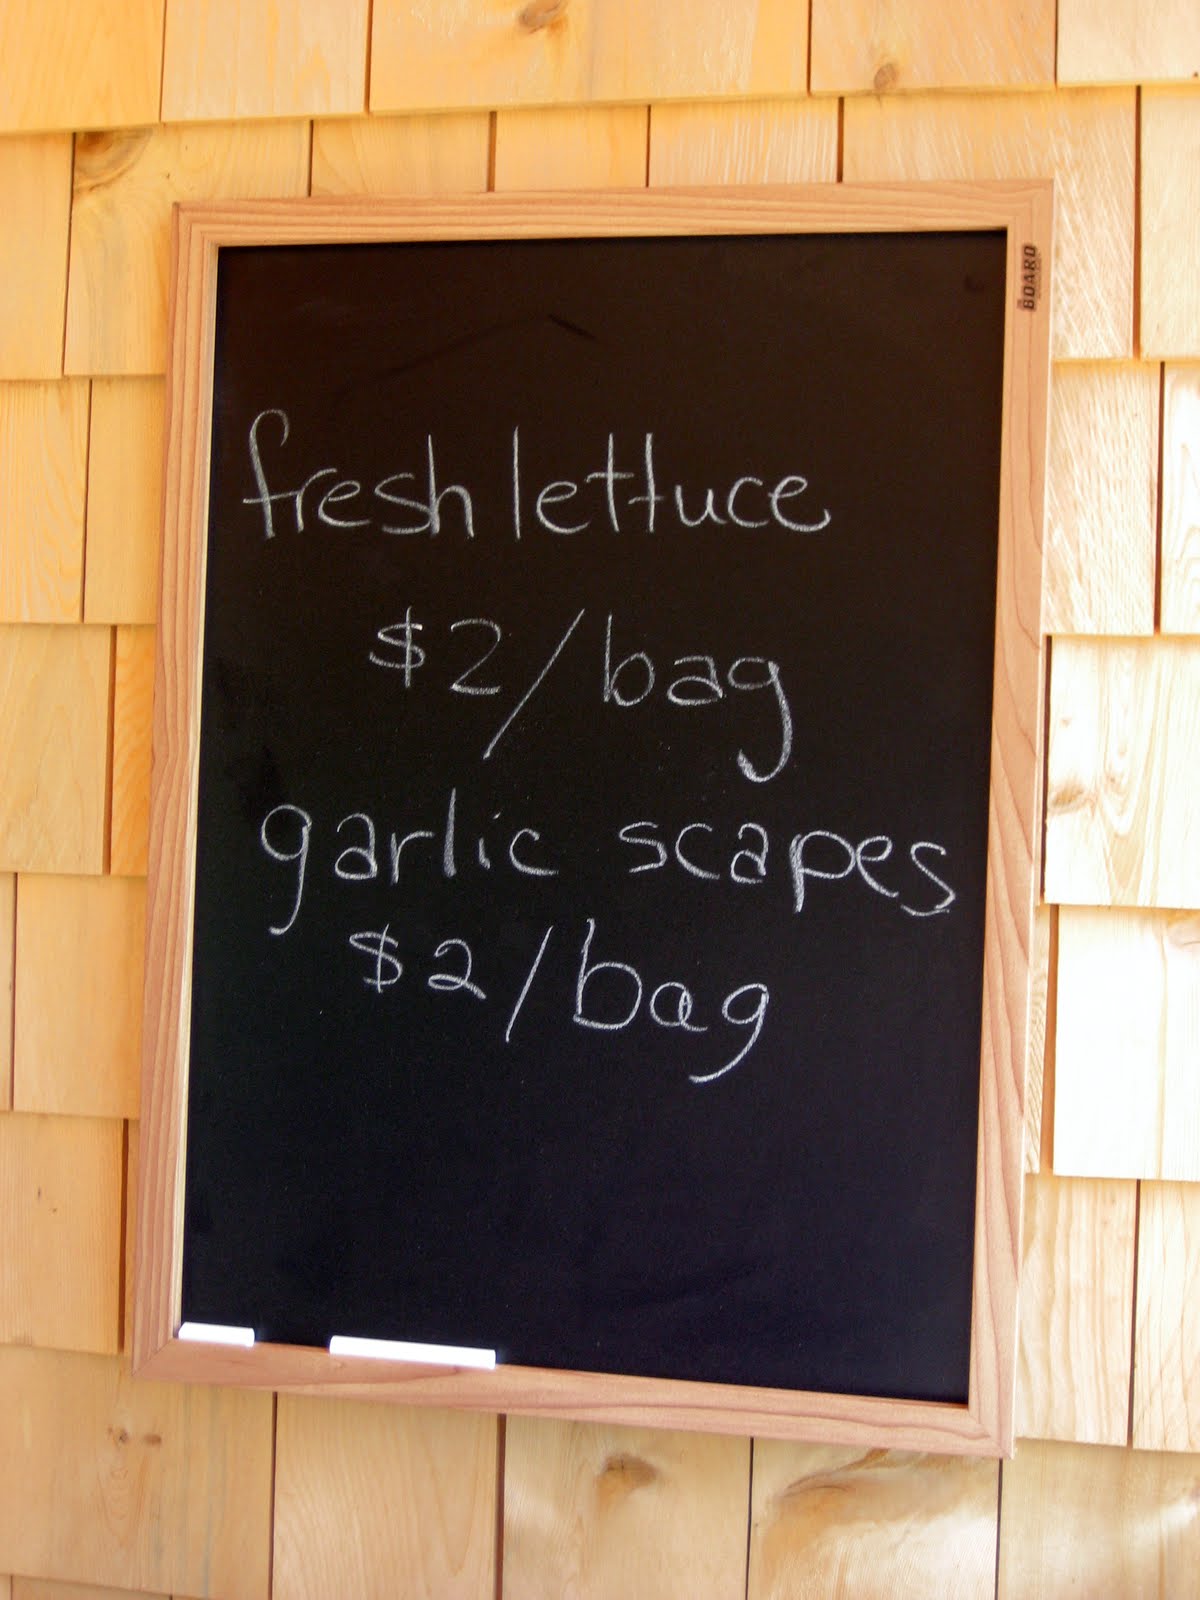 BOARD
fresh lettuce
$2/bag
garlic scapes
$2/bag